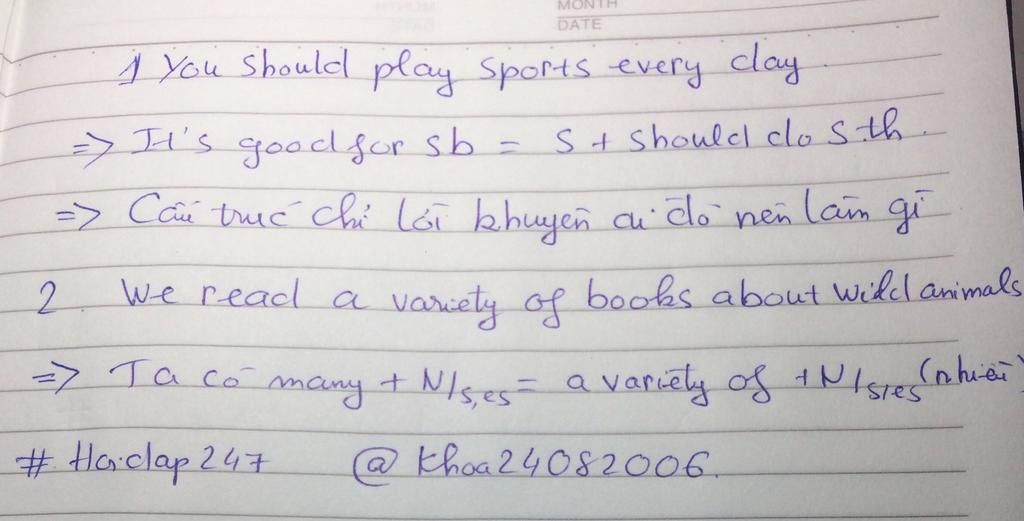 MONTH
DATE
1 You should play sports every day.
=> It's good for sb = S + should do sth.
=> Cấu trúc chỉ lời khuyên ai đó nên làm gì
2 We read a variety of books about wild animals
=> Ta có many + N/s,es = a variety of + N/s/es (nhiều)
# Hoidap247 @ Khoa24082006.